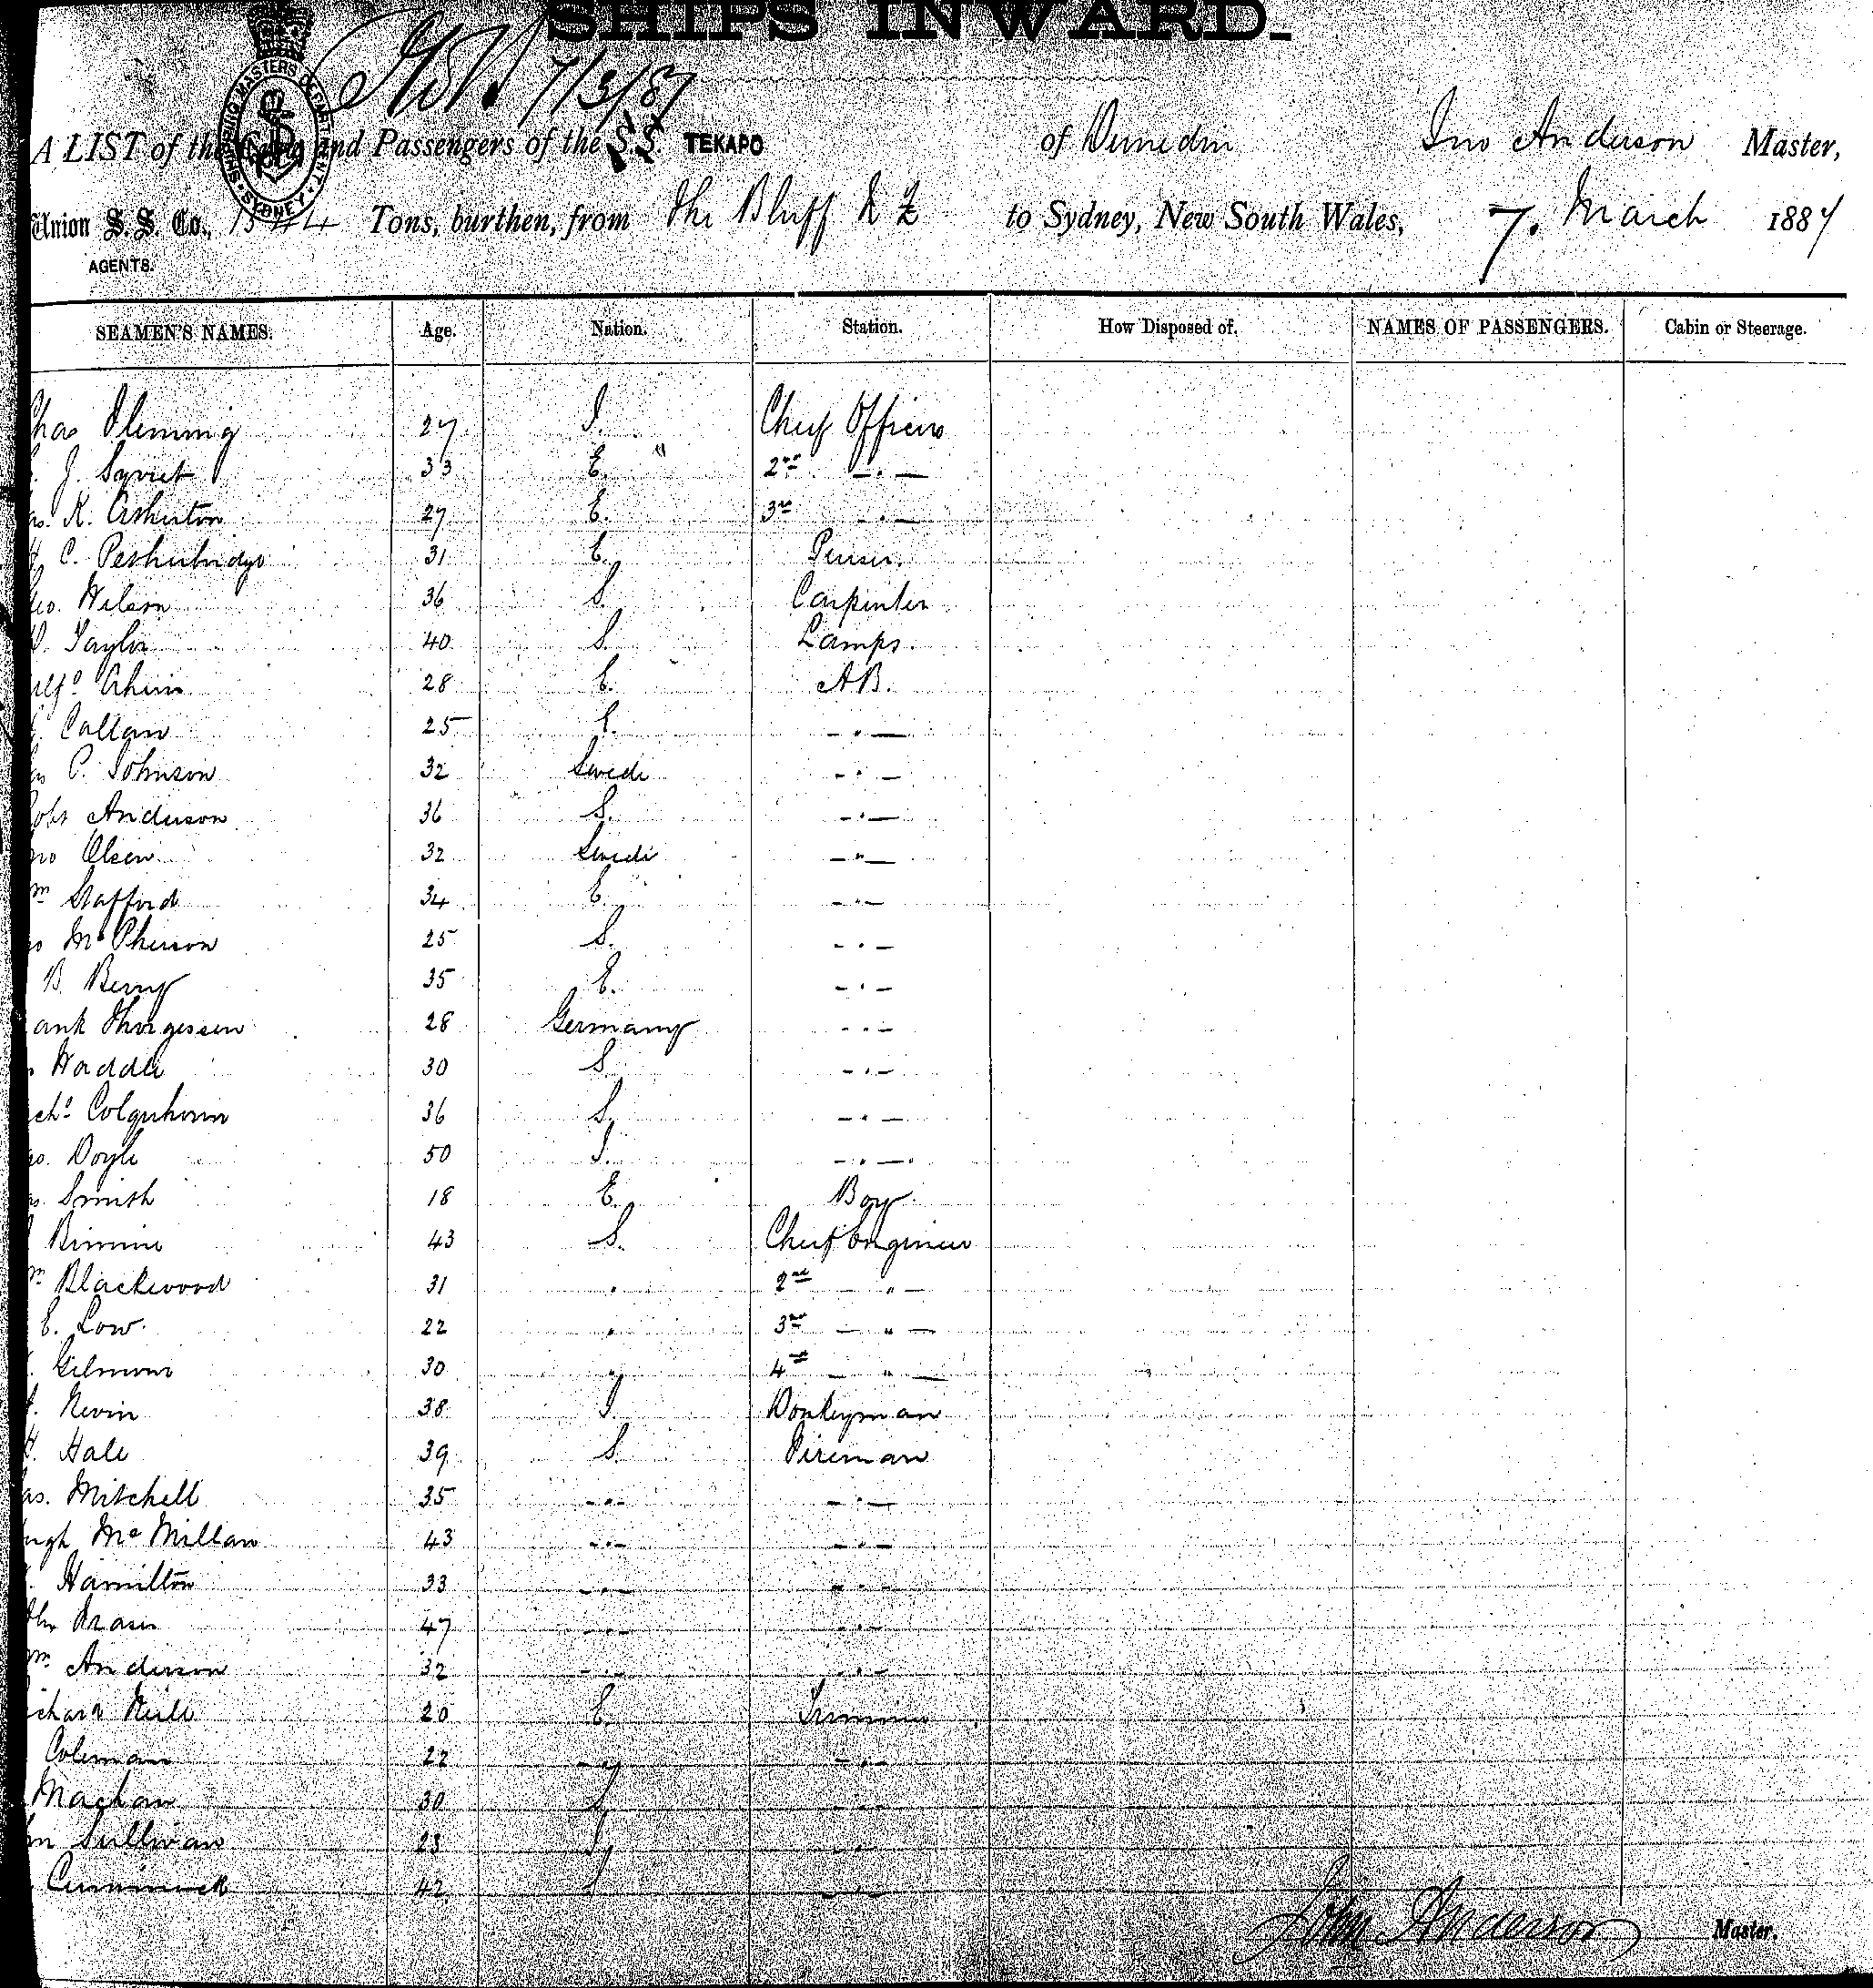 SHIPS INWARD.
7/3/87
SHIPPING MASTERS DEPARTMENT SYDNEY
A LIST of the and Passengers of the S.S. TEKAPO of Dunedin Jno Anderson Master,
Union S. S. Co., 1544 Tons, burthen, from the Bluff N Z to Sydney, New South Wales, 7. March 1887
AGENTS.
SEAMEN'S NAMES. Age. Nation. Station. How Disposed of. NAMES OF PASSENGERS. Cabin or Steerage.
Chas Fleming 27 I. Chief Officer
J. 33 E. " 2nd — . —
K. Asherton 27 E. 3rd — . —
C. Pethurbridge 31 E. Purser.
Geo. Wilson 36 S. Carpenter
Taylor 40 S. Lamps.
28 E. AB.
Callan 25 E. — . —
C. Johnson 32 Swede — . —
Robt Anderson 36 S. — . —
Jno Olsen 32 Swede — " —
Wm Stafford 34 E. — . —
McPherson 25 S. — . —
B. Berry 35 E. — . —
ank Thorgessen 28 Germany — . —
Waddle 30 S. — . —
chd Colquhoun 36 S. — . —
Doyle 50 I. — . —
Smith 18 E. Boy.
Binnie 43 S. Chief Engineer
Wm Blackwood 31 " 2nd " —
E. Low 22 " 3rd — " —
Gilmour 30 " 4th — " —
Nevin 38 I. Donkeyman
Hale 39 S. Fireman
as. Mitchell 35 — " — — . —
ugh McMillan 43 — " — — . —
Hamilton 33 — " — — . —
John Fraser 47 — . — — . —
Wm Anderson 32 — . — — . —
ichard Neill 20 E. Trimmer
Coleman 22 — " — — . —
Maghan 30 I — . —
hn Sullivan 23 I, — . —
42 — . —
John Anderson Master.